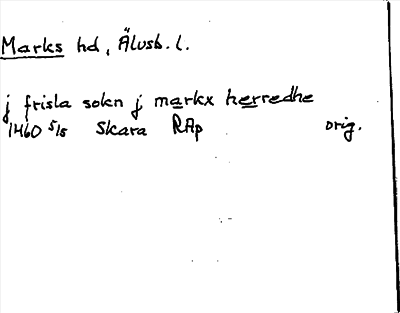 Marks hd, Älvsb. l.
j frisla sokn j markx herredhe
1460 5/5 Skara RAp orig.